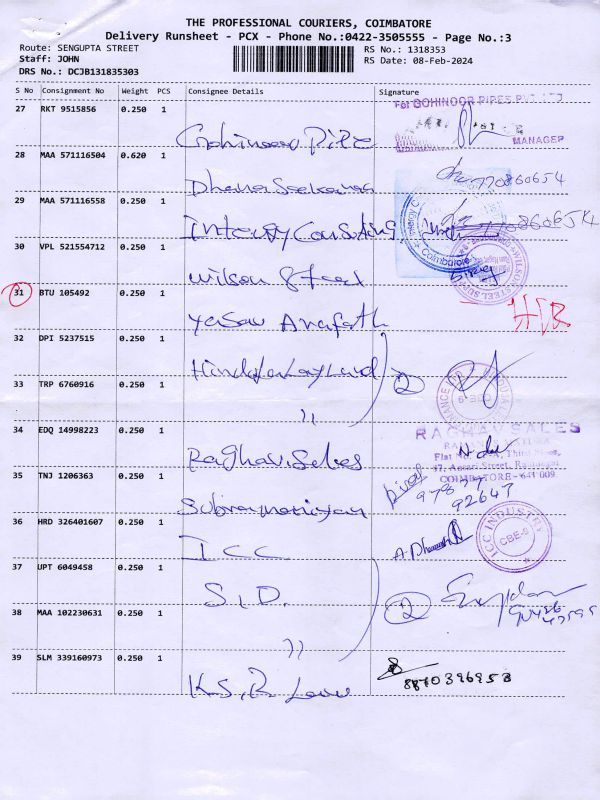 THE PROFESSIONAL COURIERS, COIMBATORE
Delivery Runsheet - PCX - Phone No.:0422-3505555 - Page No.:3
Route: SENGUPTA STREET RS No.: 1318353
Staff: JOHN RS Date: 08-Feb-2024
DRS No.: DCJB131835303
S No Consignment No Weight PCS Consignee Details Signature
27 RKT 9515856 0.250 1
For GOHINOOR PIPES PVT LTD
MANAGER
Gohinoor Pipe
28 MAA 571116504 0.620 1
9770860654
Dhana Seekaran
29 MAA 571116558 0.250 1
Intergy Consulting
Coimbatore
30 VPL 521554712 0.250 1
Wilson Steel
31 BTU 105492 0.250 1
Yasar Arafath
32 DPI 5237515 0.250 1
Hinduja Leyland 2
33 TRP 6760916 0.250 1
"
34 EDQ 14998223 0.250 1
RAGHAV SALES
COIMBATORE - 641 009
Raghav Sales
35 TNJ 1206363 0.250 1
97877
92647
Subramaniyan
36 HRD 326401607 0.250 1
ICC INDUSTRY
CBE-6
ICC
37 UPT 6049458 0.250 1
S.D. 2
38 MAA 102230631 0.250 1
"
39 SLM 339160973 0.250 1
8870396953
K.S.R